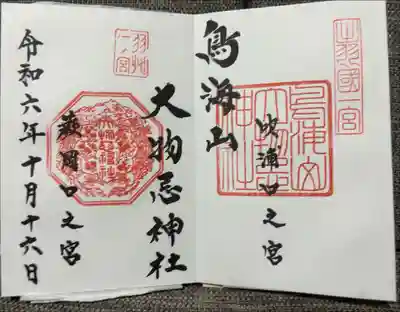 出羽國一宮
鳥海山
大物忌
神社
吹浦口之宮
鳥海山
大物忌神社
羽州
一ノ宮
蕨岡口之宮
令和六年十月十六日